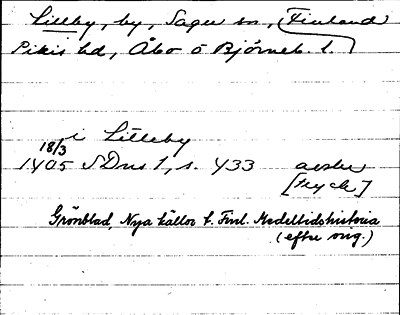 Lilleby, by, Sagu sn, (Finland)
Pikis hd, Åbo o Björneb. l.
i Litleby
18/3
1405 SDns 1, s. 433 avskr
[tryck]
Grönblad, Nya källor t. Finl. Medeltidshistoria
(efter orig.)